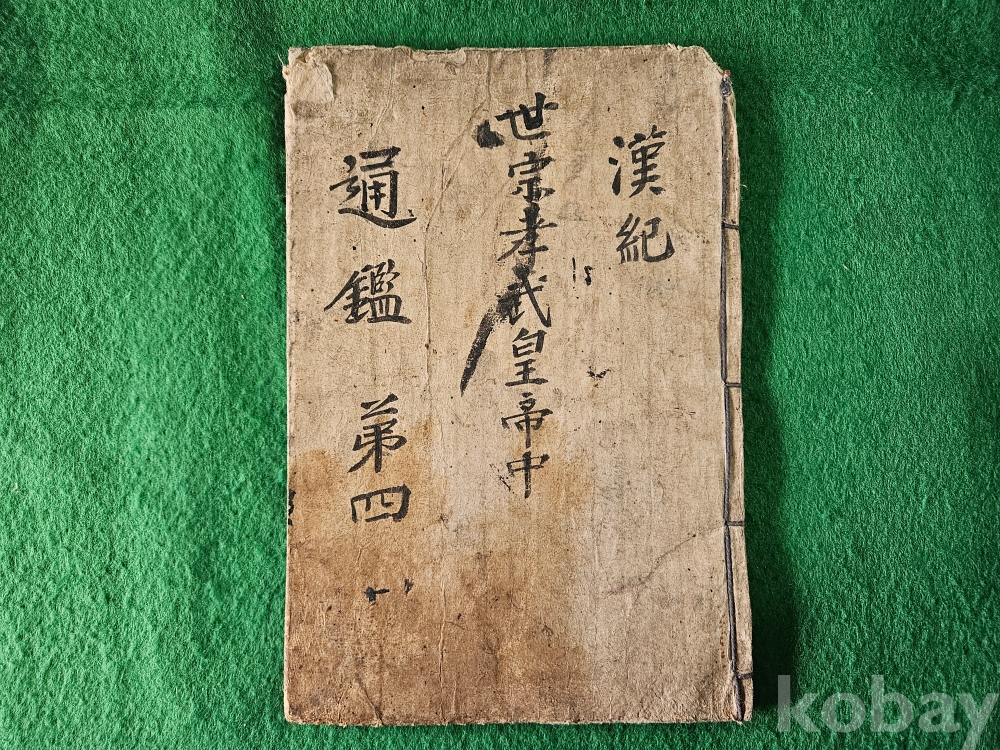 漢紀
世宗孝武皇帝中
通鑑 第四
kobay